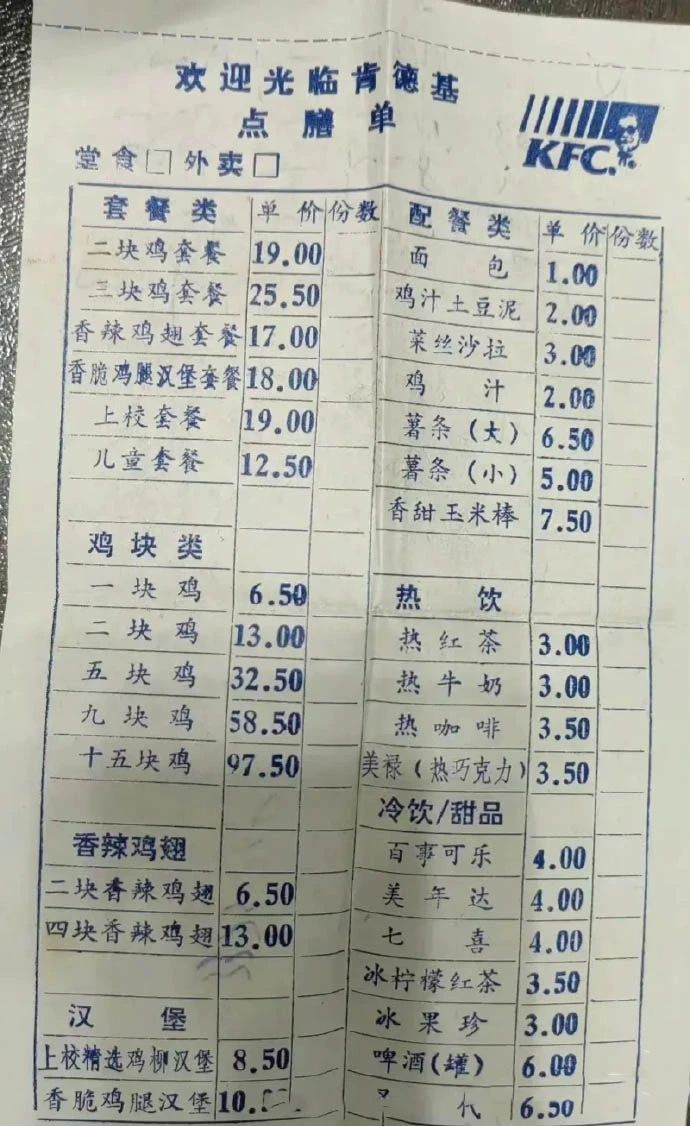 欢迎光临肯德基
点膳单
KFC.
堂食□ 外卖□
套餐类 单价 份数
二块鸡套餐 19.00
三块鸡套餐 25.50
香辣鸡翅套餐 17.00
香脆鸡腿汉堡套餐 18.00
上校套餐 19.00
儿童套餐 12.50
鸡块类
一块鸡 6.50
二块鸡 13.00
五块鸡 32.50
九块鸡 58.50
十五块鸡 97.50
香辣鸡翅
二块香辣鸡翅 6.50
四块香辣鸡翅 13.00
汉堡
上校精选鸡柳汉堡 8.50
香脆鸡腿汉堡 10.
配餐类 单价 份数
面包 1.00
鸡汁土豆泥 2.00
菜丝沙拉 3.00
鸡汁 2.00
薯条(大) 6.50
薯条(小) 5.00
香甜玉米棒 7.50
热饮
热红茶 3.00
热牛奶 3.00
热咖啡 3.50
美禄(热巧克力) 3.50
冷饮/甜品
百事可乐 4.00
美年达 4.00
七喜 4.00
冰柠檬红茶 3.50
冰果珍 3.00
啤酒(罐) 6.00
6.50